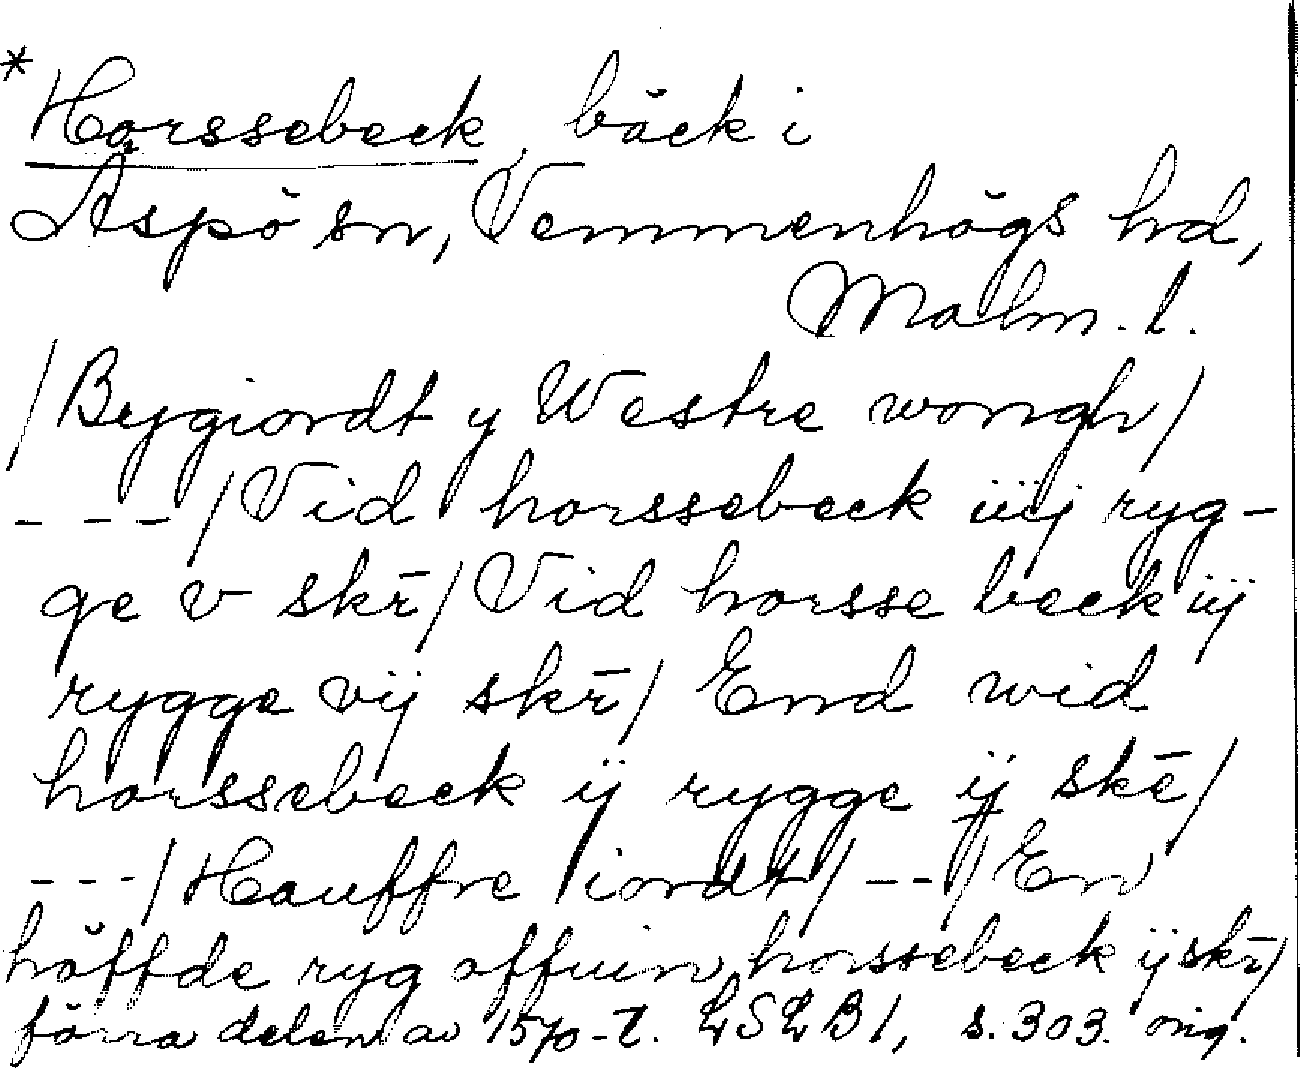 *Horssebeck, bäck i
Äspö sn, Vemmenhögs hd,
Malm. l.
/Bygiordt y Westre wongh/
- - -/Vid horssebeck iiij ryg-
ge v skr̄/Vid horsse beck iij
rygge vij skr̄/ End wid
horssebeck ij rygge ij skē/
- - -/Hauffre iordt/- -/En
höffde ryg offuin horssebeck ij skr̄/
förra delen av 1570-t. LSLB1, s. 303. orig.